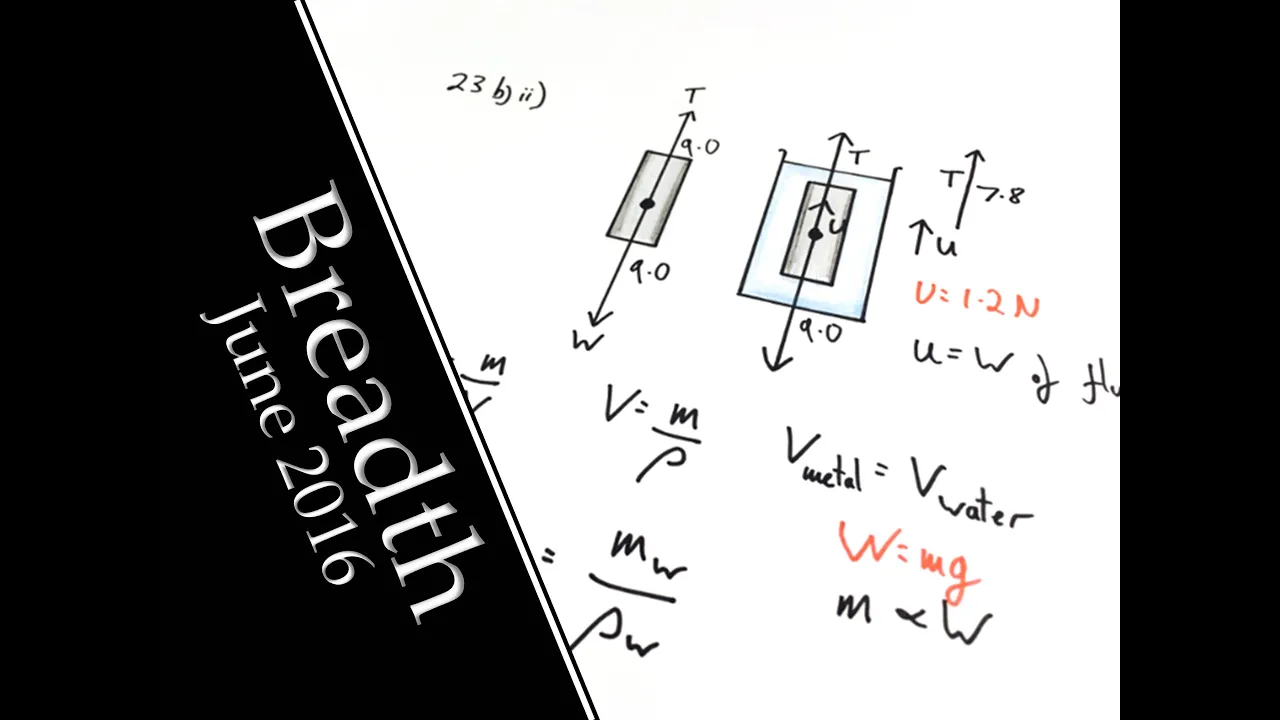 Breadth
June 2016
23 b) ii)
T
9.0
9.0
W
T
U
9.0
T
7.8
u
U = 1.2 N
u = W of flu
m
V = m
ρ
V metal = V water
W = mg
m ∝ W
= m w
ρ w